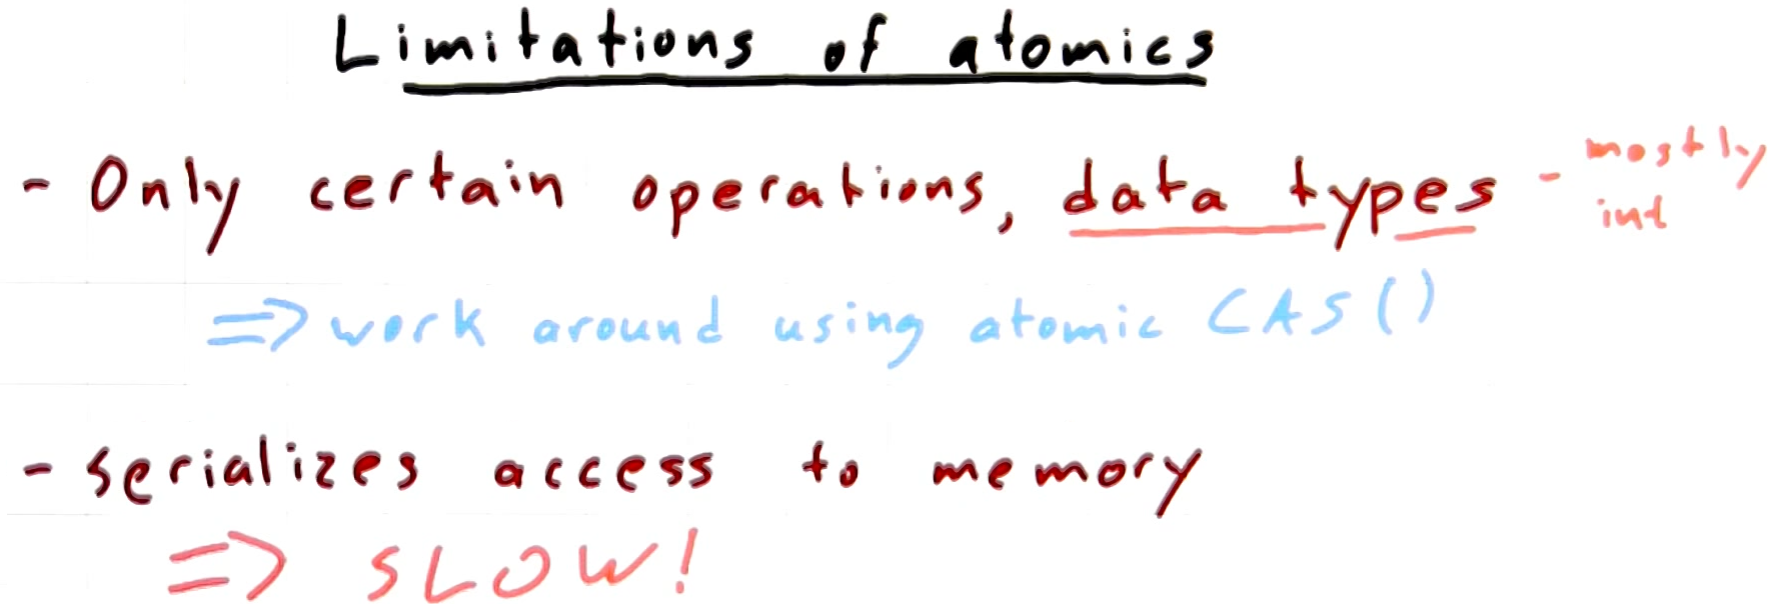 Limitations of atomics
- Only certain operations, data types - mostly int
=> work around using atomic CAS()
- serializes access to memory
=> SLOW!